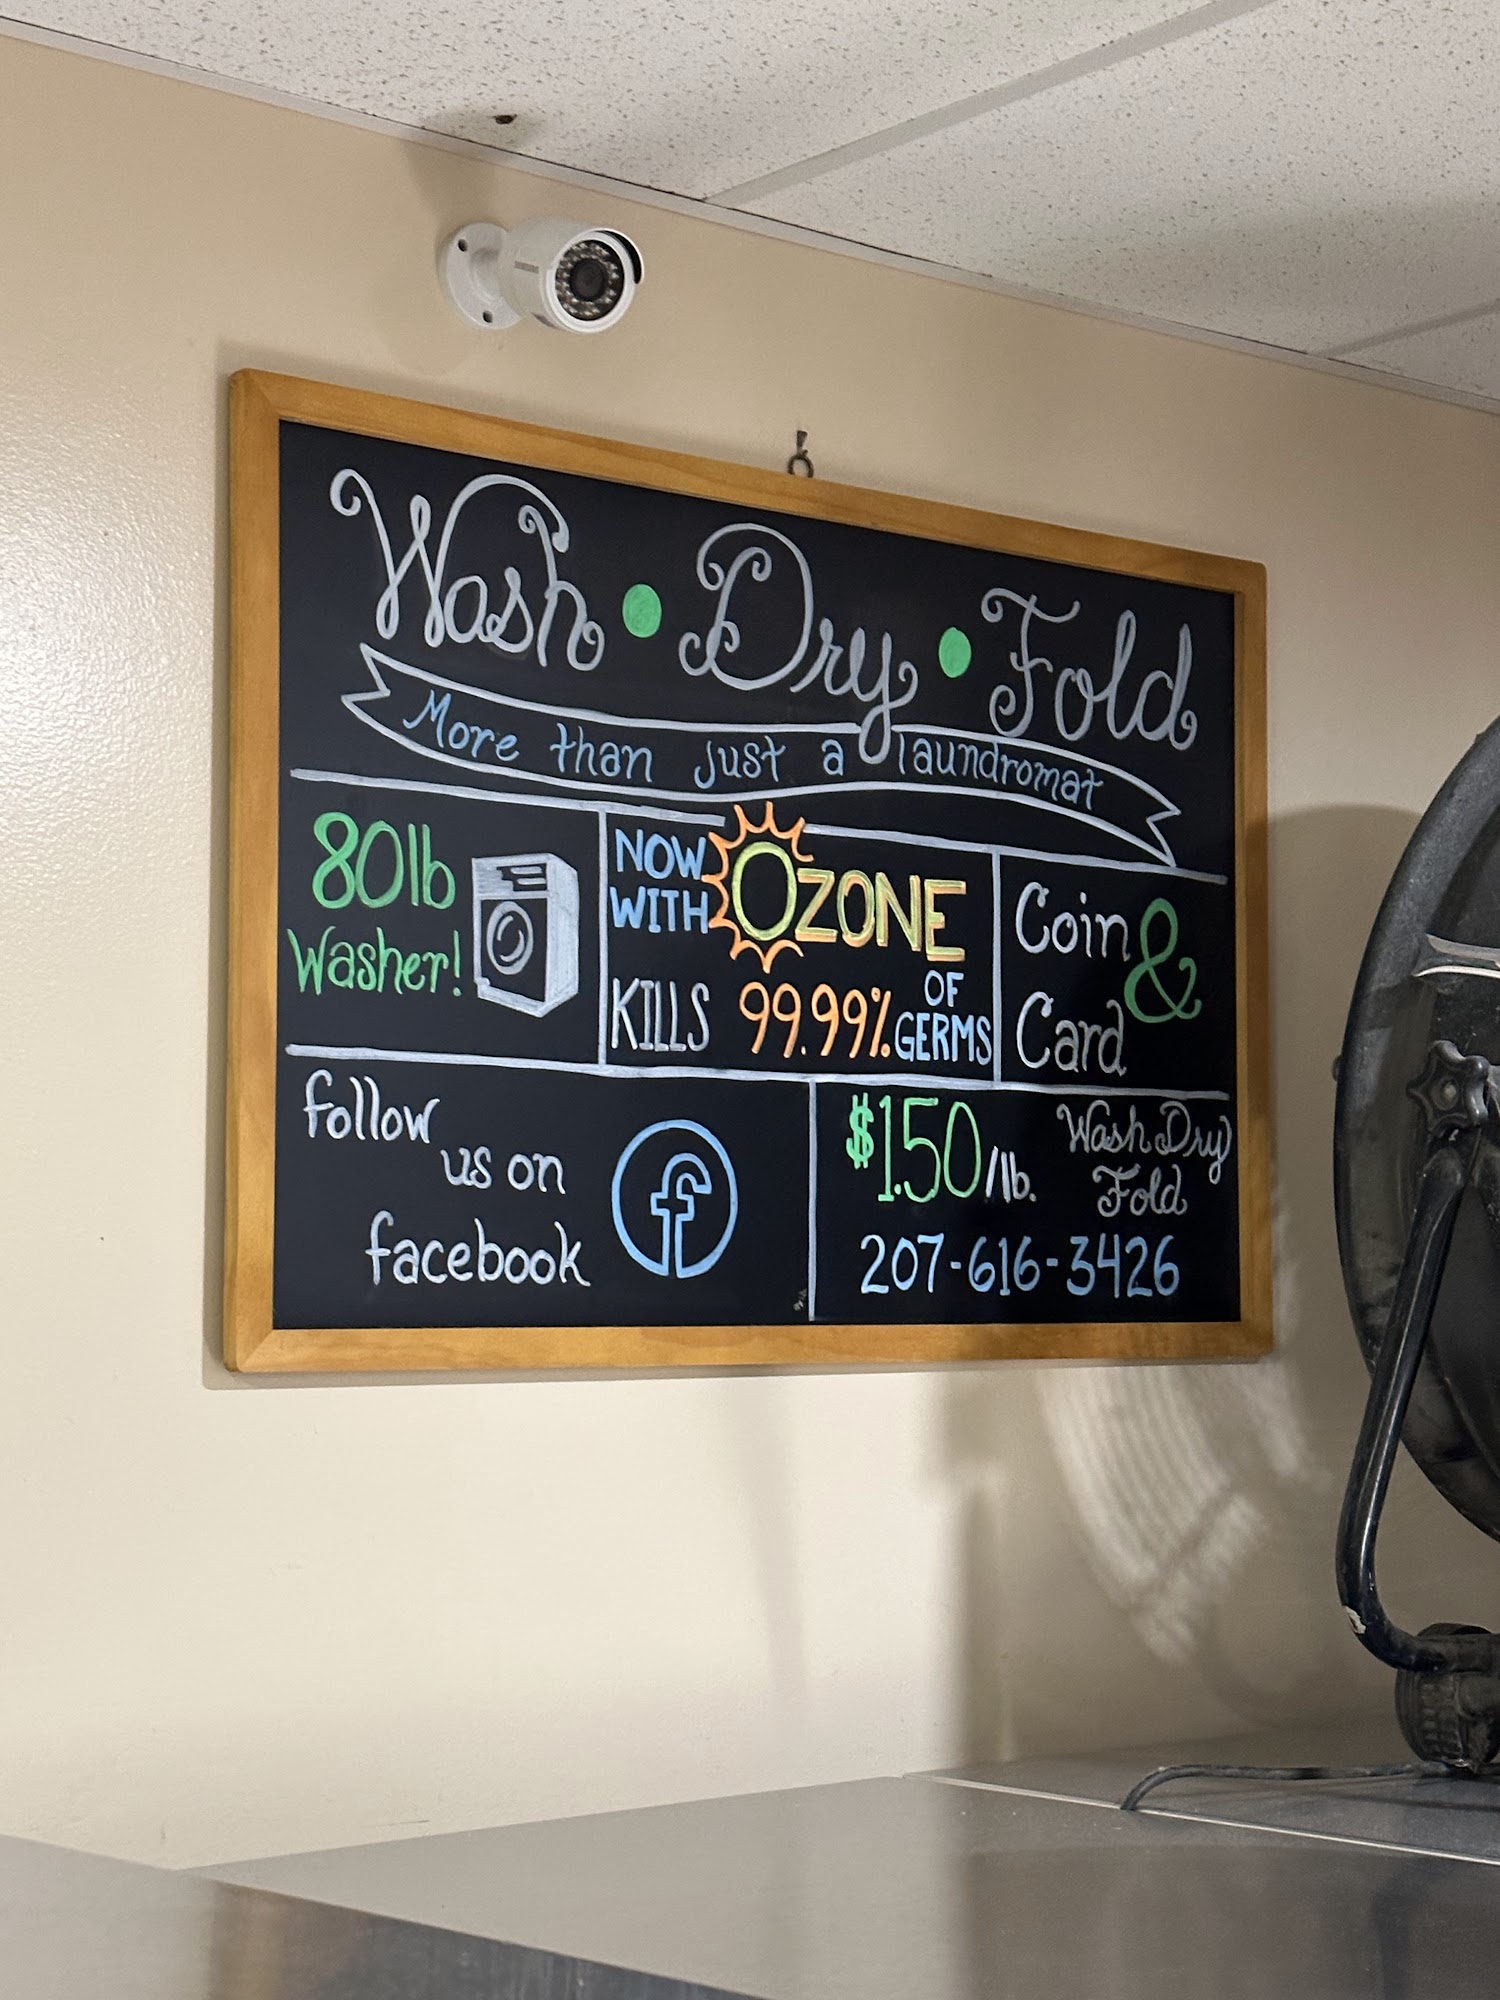 Wash • Dry • Fold
More than just a laundromat
80lb
Washer!
NOW
WITH
OZONE
KILLS 99.99% OF
GERMS
Coin &
Card
follow
us on
facebook
f
$1.50/lb. Wash Dry
Fold
207-616-3426